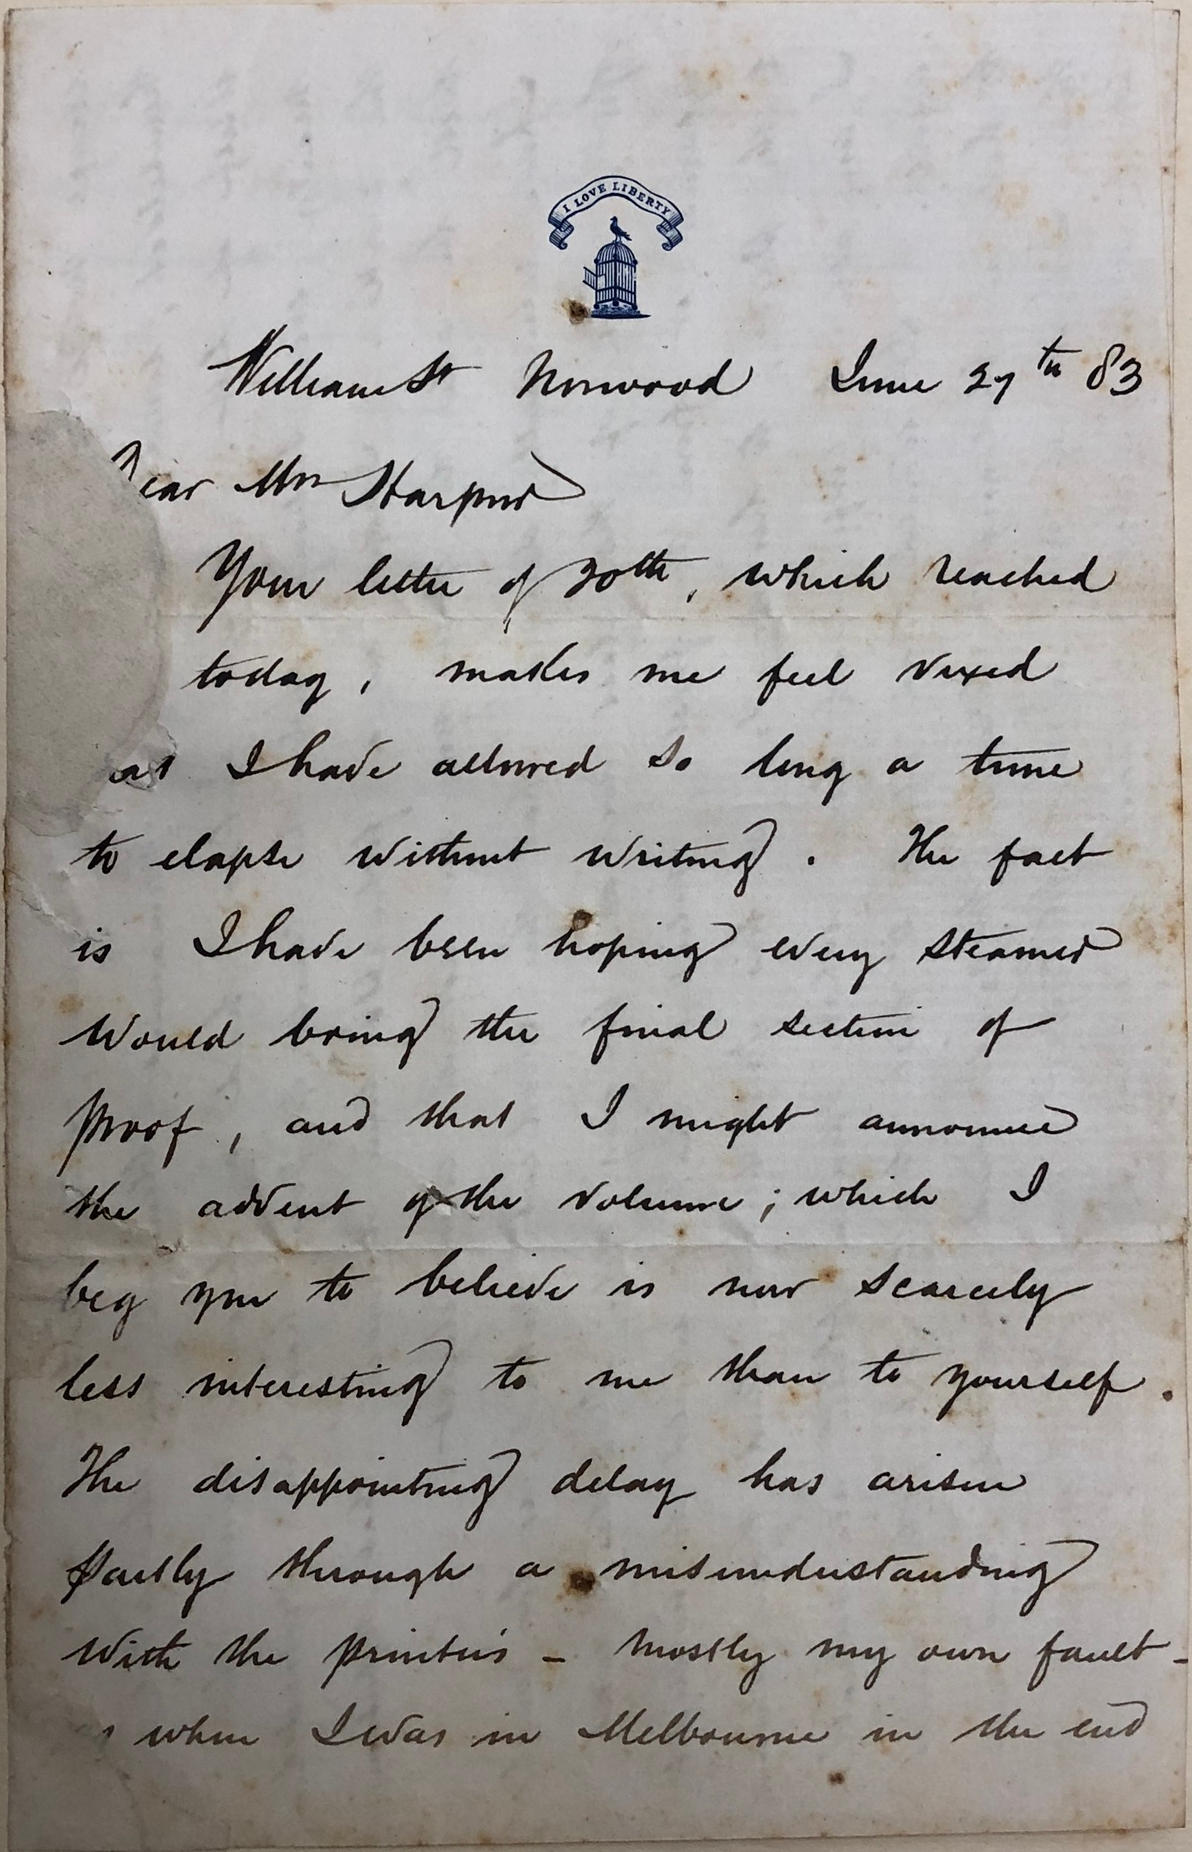 I LOVE LIBERTY
William St Norwood June 27th 83
Dear Mrs Harpur
Your letter of 20th, which reached
today, makes me feel vexed
I have allowed so long a time
to elapse without writing. The fact
is I have been hoping every steamer
would bring the final section of
proof, and that I might announce
the advent of the volume; which I
beg you to believe is now scarcely
less interesting to me than to yourself.
The disappointing delay has arisen
partly through a misunderstanding
with the printers - mostly my own fault -
when I was in Melbourne in the end